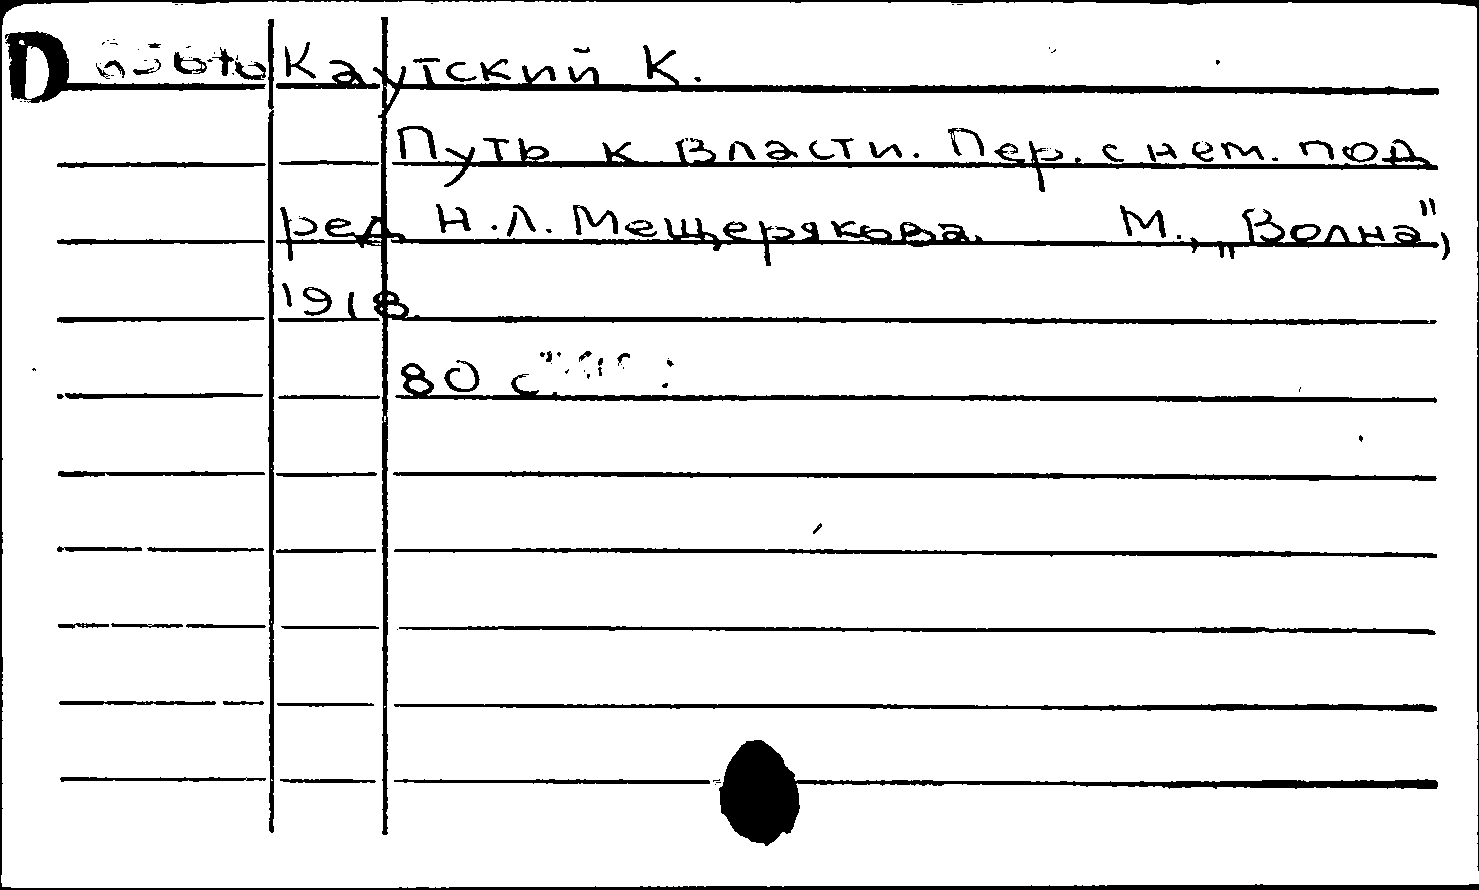 D Каутский К.
Путь к власти. Пер. с нем. под
ред Н.Л. Мещерякова. М., „Волна",
1918.
80 с.